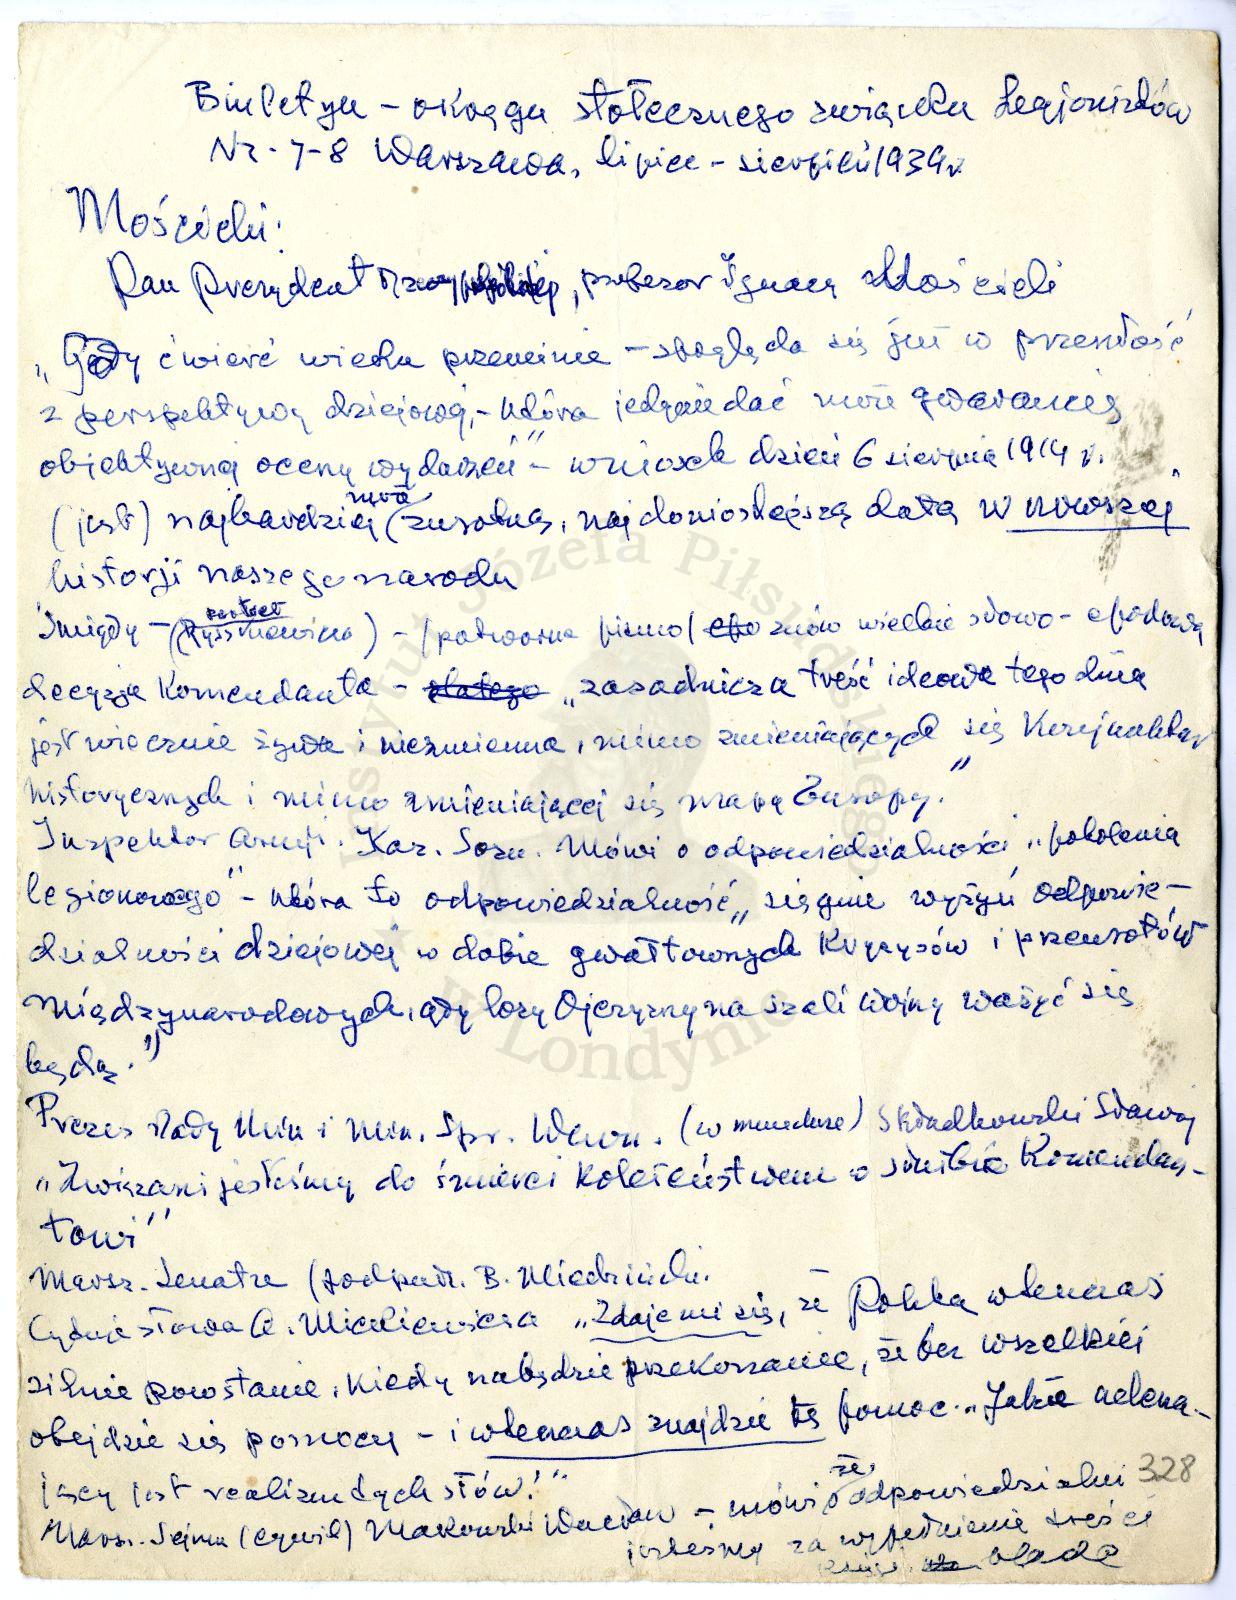 Biuletyn – okręgu stołecznego związku Legjonistów
Nr. 7-8 Warszawa, lipiec – sierpień 1939 r.
Mościcki:
Pan Prezydent Rzeczypospolitej, profesor Ignacy Mościcki
„Gdy ćwierć wieku przeminie – spogląda się już w przeszłość
z perspektywy dziejowej, – która jedynie dać może gwarancję
objektywnej oceny wydarzeń" – wniosek dzień 6 sierpnia 1914 r.
(jest) najbardziej zwrotną, najdonioślejszą datą w nowszej
historji naszego narodu
Śmigły – (Rydz portret) – (potworne pismo) znów wielkie słowo – epokową
decyzja Komendanta – dlatego „zasadnicza treść ideowa tego dnia
jest wiecznie żywa i niezmienna, mimo zmieniających się konjunktur
historycznych i mimo zmieniającej się mapy Europy."
Inspektor Armji. Kaz. Sosn. Mówi o odpowiedzialności „pokolenia
legionowego" – która to odpowiedzialność „sięgnie wyżyn odpowie–
dzialności dziejowej w dobie gwałtownych kryzysów i przewrotów
międzynarodowych, gdy losy Ojczyzny na szali wojny ważyć się
będą."
Prezes Rady Min i Min. Spr. Wewn. (w mundurze) Składkowski Sławoj
„Związani jesteśmy do śmierci koleżeństwem o służbie Komendan–
towi"
Marsz. Senatu (podpułk. B. Miedziński.
Cytuje słowa A. Mickiewicza „Zdaje mi się, że Polska wtenczas
silnie powstanie, kiedy nabędzie przekonanie, że bez wszelkiej
obejdzie się pomocy – i wtenczas znajdzie tę pomoc." Jakże
jest realizm tych słów!"
Marsz. Sejmu (cywil) Makowski Wacław – mówi że odpowiedzialni
jesteśmy za wypełnienie treści
328
Instytut Józefa Piłsudskiego
w Londynie